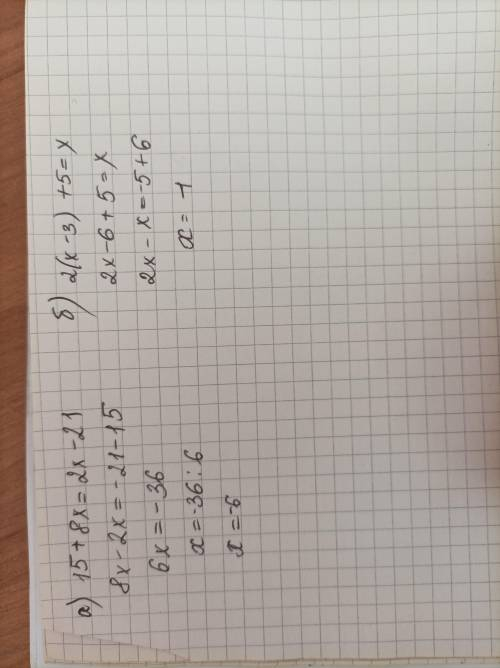 а) 15 + 8x = 2x - 21
8x - 2x = -21 - 15
6x = -36
x = -36 : 6
x = -6
б) 2(x - 3) + 5 = x
2x - 6 + 5 = x
2x - x = -5 + 6
x = 1